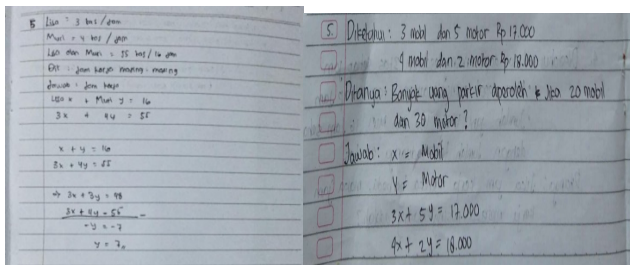 5 Lisa : 3 tas / jam
Muri = 4 tas / jam
Lisa dan Muri = 55 tas / 16 jam
Dit : jam kerja masing-masing
Jawab = jam kerja
Lisa x + Muri y = 16
3x + 4y = 55
x + y = 16
3x + 4y = 55
→ 3x + 3y = 48
3x + 4y = 55 -
-y = -7
y = 7
5. Diketahui : 3 mobil dan 5 motor Rp 17.000
4 mobil dan 2 motor Rp 18.000
Ditanya : Banyak uang parkir diperoleh jika 20 mobil
dan 30 motor ?
Jawab : x = Mobil
y = Motor
3x + 5y = 17.000
4x + 2y = 18.000